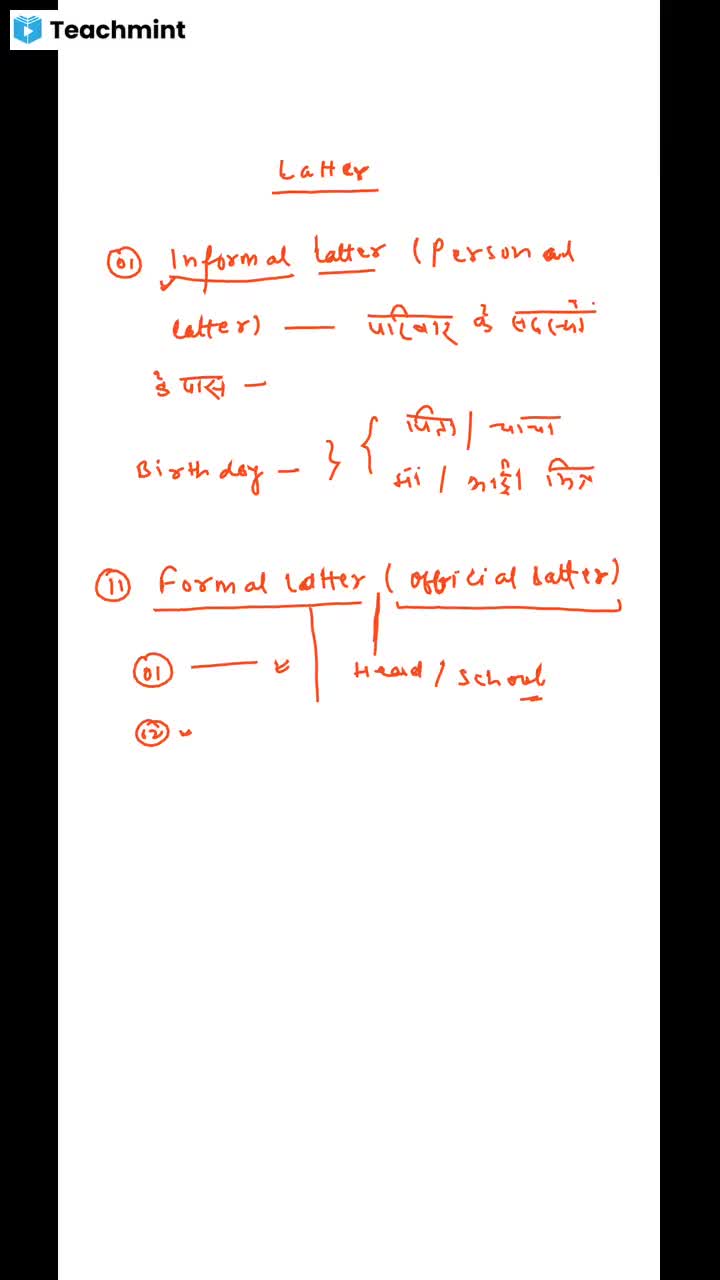 Teachmint
Latter
01 Informal Latter (Personal
Latter) — परिवार के सदस्यों
के पास —
पिता / चाचा
Birthday — } {
माँ / भाई / मित्र
11 Formal Latter (official Latter)
01 — Head / School
02